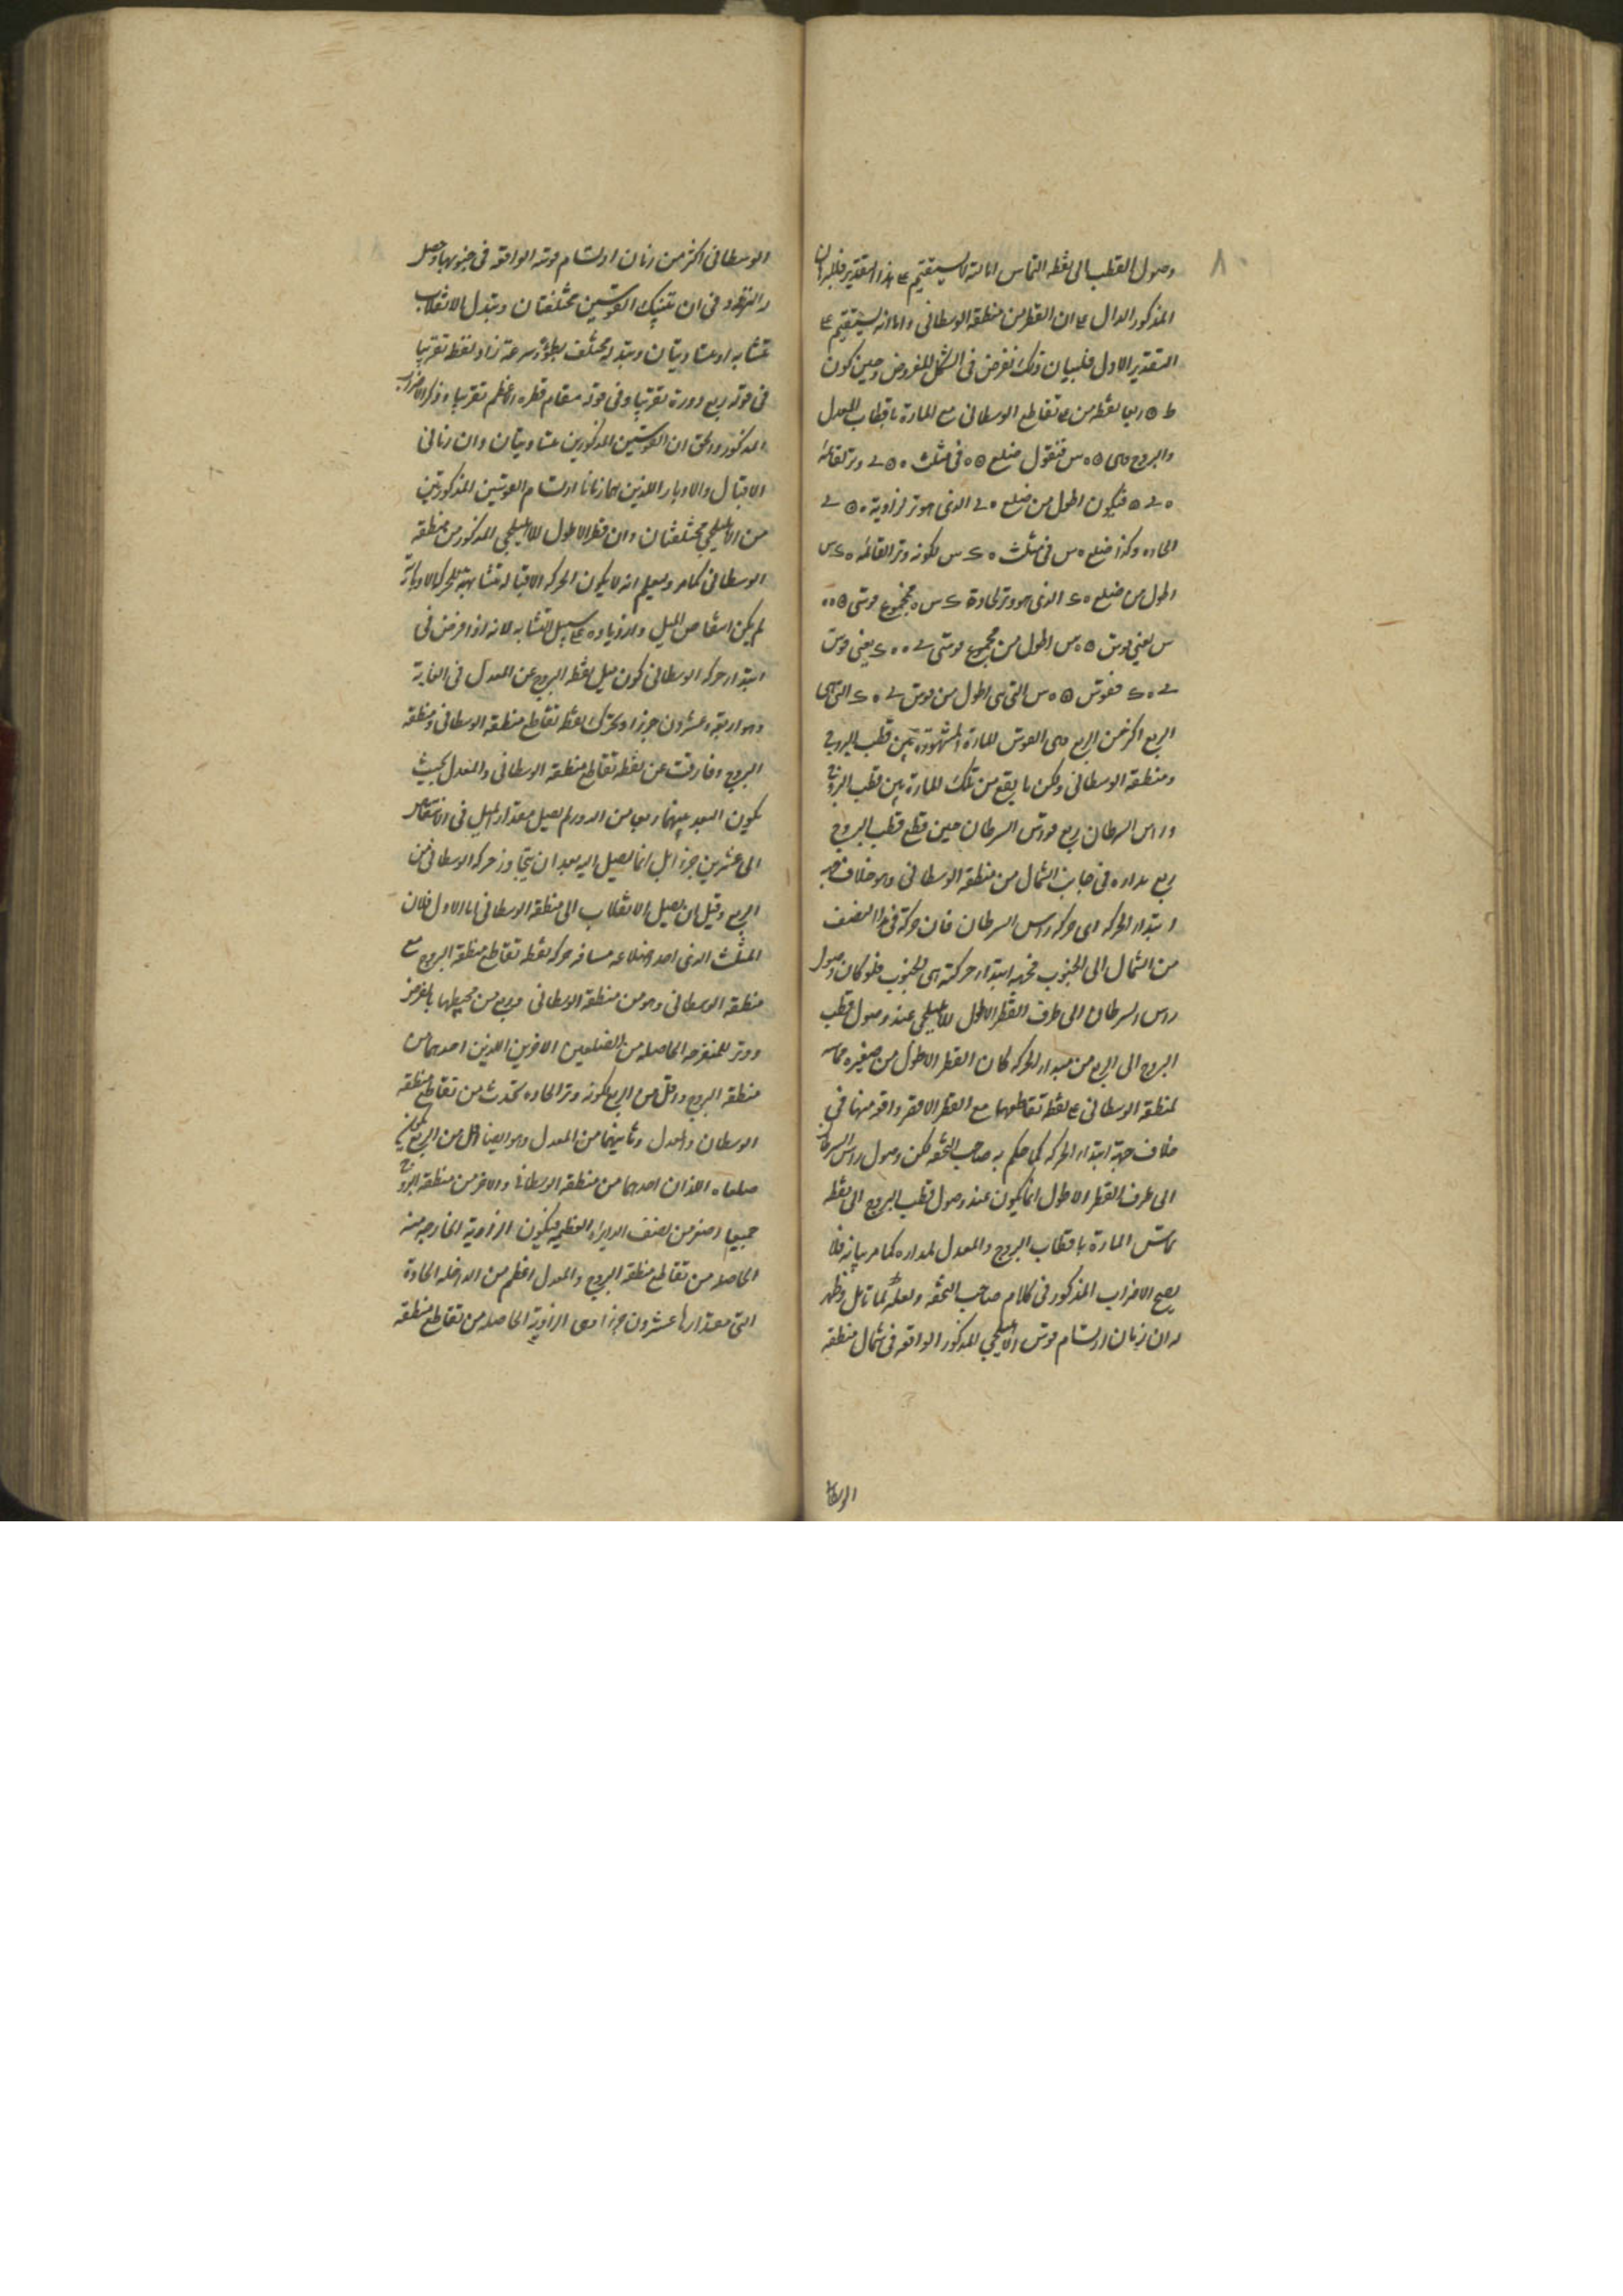 ٨٠
وصول القطب الى نقطة التماس اما انه لا يستقيم على هذا التقدير فللبرهان
المذكور الدال على ان القطر من منطقة الوسطانى واما انه يستقيم على
التقدير الاول فلبيان ذلك نفرض فى الشكل المفروض وحين كون
تقاطع الوسطانى مع المارة باقطاب المعدل
والبروج وهى فنقول ضلع فى مثلث وتر لقائمة
فيكون اطول من ضلع الذى هو وتر لزاوية
الحادة وكذا ضلع فى مثلث لكونه وتر القائمة
اطول من ضلع الذى هو وتر لحادة فمجموع قوسى
س يعنى قوس اطول من مجموع قوسى يعنى قوس
فقوس التى هى اطول من قوس التى هى
الربع اكثر من الربع وهى القوس للمارة المشهورة بين قطب البروج
ومنطقة الوسطانى ولكن ما يقع من تلك المارة بين قطب البروج
وراس السرطان ربع فراس السرطان حين قطع قطب البروج
ربع مداره فى جانب الشمال من منطقة الوسطانى وهو خلاف جهة
ابتداء الحركة اى حركة راس السرطان فان حركة فى هذا النصف
من الشمال الى الجنوب فجهة ابتداء حركته هى الجنوب فلو كان وصول
راس السرطان الى طرف القطر الاطول للاهليلجى عند وصول قطب
البروج الى الربع من مبداء الحركة لكان القطر الاطول من صغيرة مماسة
لمنطقة الوسطانى على نقطة تقاطعهما مع القطر الاقصر واقعة منها فى
خلاف جهة ابتداء الحركة كما حكم به صاحب التحفة لكن وصول راس السرطان
الى طرف القطر الاطول انما يكون عند وصول قطب البروج الى نقطة
تماس المارة باقطاب البروج والمعدل لمداره كما مر بيانه فلا
يصح الاضراب المذكور فى كلام صاحب التحفة ولعله لما تامل وظهر
له ان زمان ارتسام قوس الاهليلجى المذكور الواقعة فى شمال منطقة
الوسطا
الوسطانى اكثر من زمان ارتسام قوسه الواقعة فى جنوبها وحصل
له التردد فى ان تينك القوسين مختلفتان وتبدل بالانقلاب
متشابه او متساويتان وتبدله مختلف بطؤ وسرعة زاد لفظ تقريبا
فى قوله ربع دورة تقريبا وفى قوله مقام قطره الاعظم تقريبا وذكر الاضراب
المذكور والحق ان القوسين المذكورين متساويتان وان زمانى
الاقبال والادبار اللذين هما زمانا ارتسام القوسين المذكورتين
من الاهليلجى مختلفتان وان قطر الاطول للاهليلجى المذكور من منطقة
الوسطانى كما مر وليعلم انه لا يكون الحركة الاقبالية متشابهة للحركة الادبارية
لم يكن انتقاص الميل وازدياده على سبيل التشابه لانه اذا فرض فى
ابتداء حركة الوسطانى كون ميل نقطة البروج عن المعدل فى الغاية
وهو اربعة وعشرون جزءا وتحرك نقطة تقاطع منطقة الوسطانى ومنطقة
البروج وفارقت عن نقطة تقاطع منطقة الوسطانى والمعدل بحيث
يكون البعد بينهما ربعا من الدور لم يصل مقدار الميل فى الانتقاص
الى عشرين جزءا بل انما يصل اليه بعد ان يتجاوز حركة الوسطانى من
الربع وقبل ان يصل الانقلاب الى منطقة الوسطانى اما الاول فلان
المثلث الذى احد اضلاعه مسافة حركة نقطة تقاطع منطقة البروج مع
منطقة الوسطانى وهو من منطقة الوسطانى وربع من محيطها بالفرض
ووتر للمنفرجة الحاصلة من الضلعين الاخرين اللذين احدهما من
منطقة البروج واقل من الربع لكونه وتر الحادة تحدث من تقاطع منطقة
الوسطانى والمعدل وثانيهما من المعدل وهو ايضا اقل من الربع
ضلعاه اللذان احدهما من منطقة الوسطانى والاخر من منطقة البروج
جميعا اصغر من نصف الدائرة العظيمة فيكون الزاوية الخارجة منه
الحاصلة من تقاطع منطقة البروج والمعدل اعظم من الداخلة الحادة
التى مقدارها عشرون جزءا وهى الزاوية الحاصلة من تقاطع منطقة